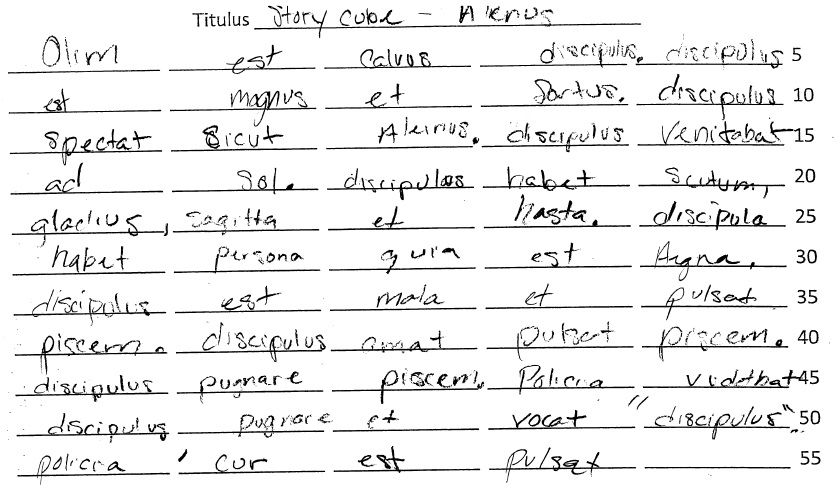 Titulus Story cube - Alenus
Olim est Calvus discipulus. discipulus 5
est magnus et fortus. discipulus 10
spectat sicut Aleinus. discipulus venitabat 15
ad Sol. discipulus habet scutum, 20
gladius, sagitta et hasta. discipula 25
habet persona quia est 30
discipulus est mala et pulsat 35
piscem. discipulus amat pulsat piscem. 40
discipulus pugnare piscem. Policia videtbat 45
discipulus pugnare et vocat "discipulus". 50
policia ' cur est pulsat 55